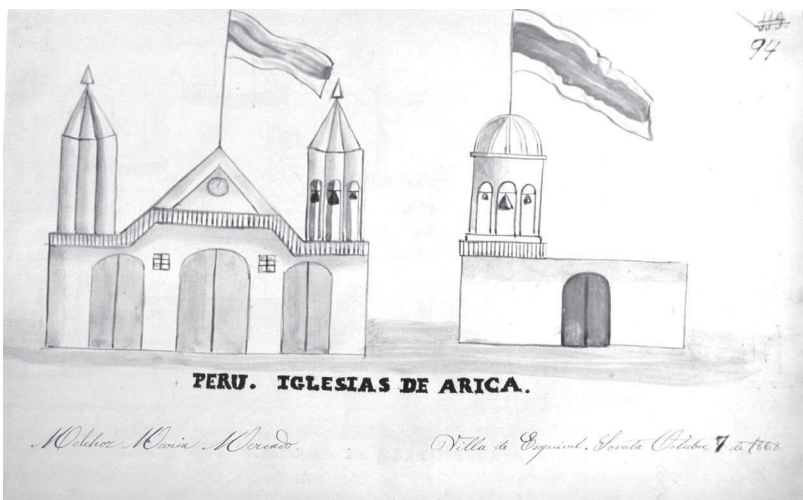 94
PERU. IGLESIAS DE ARICA.
Melchor Maria Mercado.
Villa de Esquivel. Sorata Octubre 7 de 1868